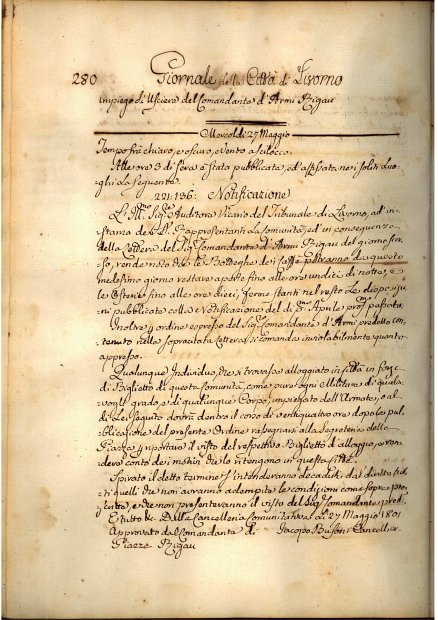 280 Giornale della Città di Livorno
impiego di Usciere del Comandante d'Armi Rigau
Mercoldì 27 Maggio
Tempo frà chiaro, e oscuro, e vento a scilocco.
Alle ore 3 di sera è stata pubblicata, ed affissa ne i soliti luo-
ghi la seguente
221.126. Notificazione
L'Ill.mo Sig.re Auditore Vicario del Tribunale di Livorno, ad in-
stanza de' Rappresentanti la Comunità, ed in conseguenza
della Lettera del Sig.re Comandante d'Armi Rigau del giorno scor-
so, rende noto che le Botteghe dei Caffè potranno da questo
medesimo giorno restare aperte fino alle ore undici di notte, e
le Osterie fino alle ore dieci, ferme stanti nel resto le disposizio-
ni pubblicate colla Notificazione del dì Aprile pros. passato.
Inoltre p. ordine espresso del Sig.re Comandante d'Armi predetto con-
tenuto nella sopracitata Lettera si comanda inviolabilmente quanto
appresso.
Qualunque Individuo, che si trovasse alloggiato in Città in forza
di Biglietto di questa Comunità, come pure ogni Militare di qualsi-
vogli grado, e di qualunque Corpo, impiegato dell'Armata, o al
di Lei seguito dovrà dentro il corso di ventiquattro ore dopo la pub-
blicazione del presente Ordine rassegnarsi alla Segreteria della
Piazza p. riportare il visto del respettivo Biglietto d'alloggio, e ren-
dere conto dei motivi che lo ritengono in questa Città.
Spirato il detto termine s'intenderanno decaduti dal diritto tut-
ti quelli che non avranno adempita le condizioni come sopra pre-
scritta, e che non presenteranno il visto del Sig.re Comandante pred.
E tutto &c. Dalla Cancelleria Comunitativa Lì 27 Maggio 1801
Approvato dal Comandante di Jacopo Busoni Cancellier
Piazza Rigau